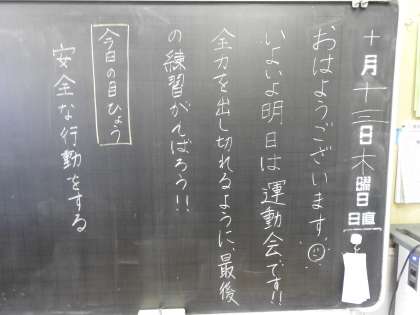 十月十三日木曜日
日直
おはようございます。
いよいよ明日は運動会です!!
全力を出し切れるように、最後
の練習がんばろう!!
今日の目ひょう
安全な行動をする